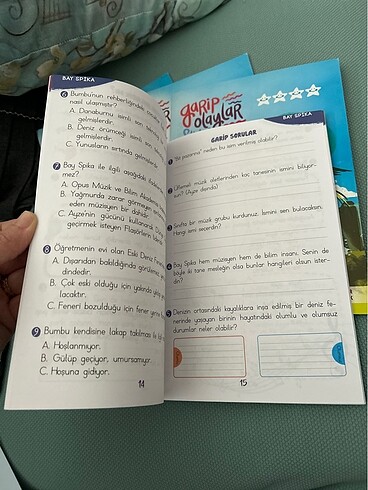 garip
olaylar
BAY SPİKA
6 Bumbu'nun rehberliğindeki
nasıl ulaşmıştır?
A. Donabumu isimli son
gelmişlerdir.
B. Deniz örümceği isimli son
gelmişlerdir.
C. Yunusların sırtında gelmişlerdir.
7 Bay Spika ile ilgili aşağıdaki
mez?
A. Opus Müzik ve Bilim Akademi
B. Yağmurda zarar görmeyen
eden müzisyen bir dahidir.
C. Ayzen'in gücünü kullanarak D
geçirmek isteyen Filasörlerin lideri
8 Öğretmenin evi olan Eski Deniz Feneri
A. Dışarıdan bakıldığında görülmesi
dindedir.
B. Çok eski olduğu için yakında
lacaktır.
C. Feneri bozulduğu için fener
9 Bumbu kendisine lakap takılması ile
A. Hoşlanmıyor.
B. Gülüp geçiyor, umursamıyor.
C. Hoşuna gidiyor.
14
BAY SPİKA
GARİP SORULAR
1 neden bu isim verilmiş olabilir?
2 Üflemeli müzik aletlerinden kaç tanesinin ismini biliyor-
sun? (Ayze dendo)
3 Sınıfta bir müzik grubu kurdunuz. İsmini sen bulacaksın.
Hangi ismi seçerdin?
4 Bay Spika hem müzisyen hem de bilim insanı. Senin de
böyle iki tane mesleğin olsa bunlar hangileri olsun ister-
din?
5 Denizin ortasındaki kayalıklara inşa edilmiş bir deniz fe-
nerinde yaşayan birinin hayatındaki olumlu ve olumsuz
durumlar neler olabilir?
15